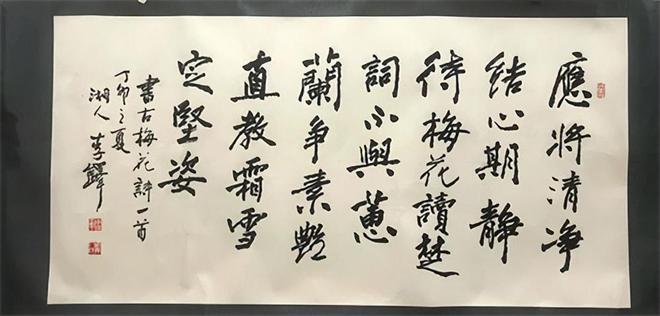 應將清净
結心期靜
待梅花讀楚
詞不與蕙
蘭争素艷
直教霜雪
定堅姿
書古梅花詩一首
丁卯之夏
湘人李鐸